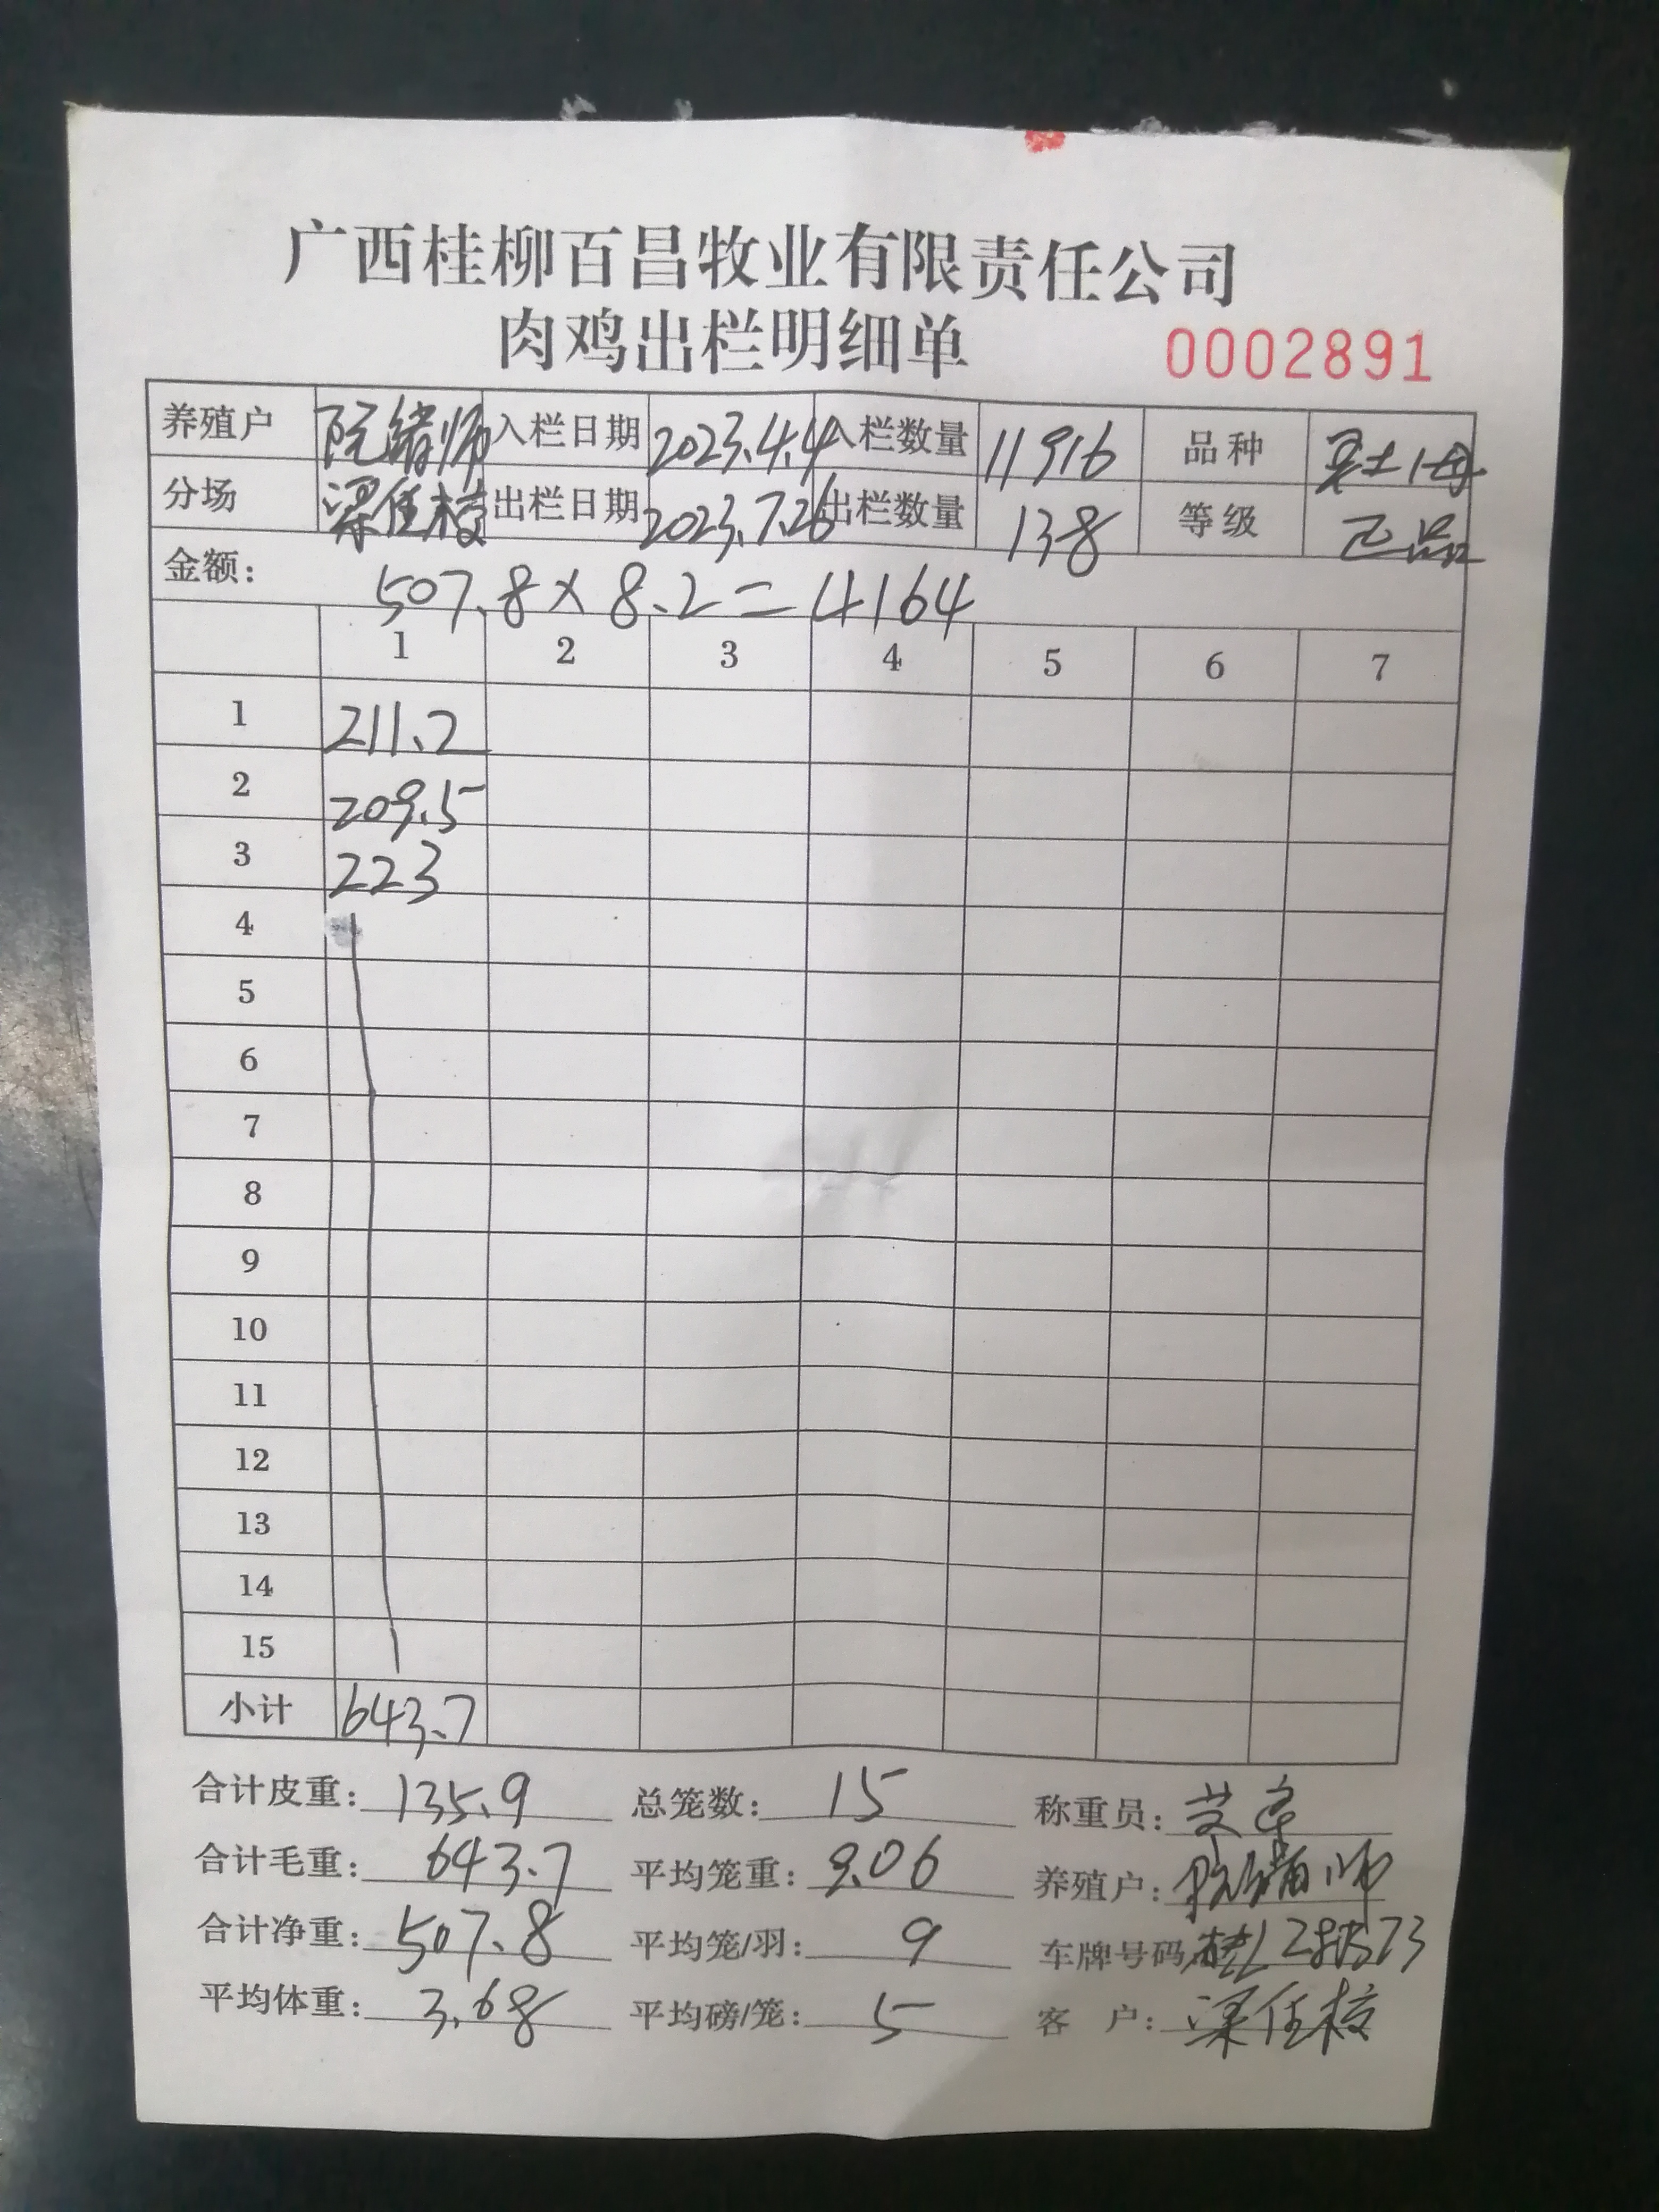 广西桂柳百昌牧业有限责任公司
肉鸡出栏明细单 0002891
养殖户 阮绪师 入栏日期 2023.4.4 入栏数量 11916 品种
分场 梁任枝 出栏日期 2023.7.26 出栏数量 138 等级 正品
金额: 507.8×8.2=4164
1 2 3 4 5 6 7
1 211.2
2 209.5
3 223
4
5
6
7
8
9
10
11
12
13
14
15
小计 643.7
合计皮重: 135.9 总笼数: 15 称重员:
合计毛重: 643.7 平均笼重: 9.06 养殖户: 阮绪师
合计净重: 507.8 平均笼/羽: 9 车牌号码
平均体重: 3.68 平均磅/笼: 5 客 户: 梁任枝